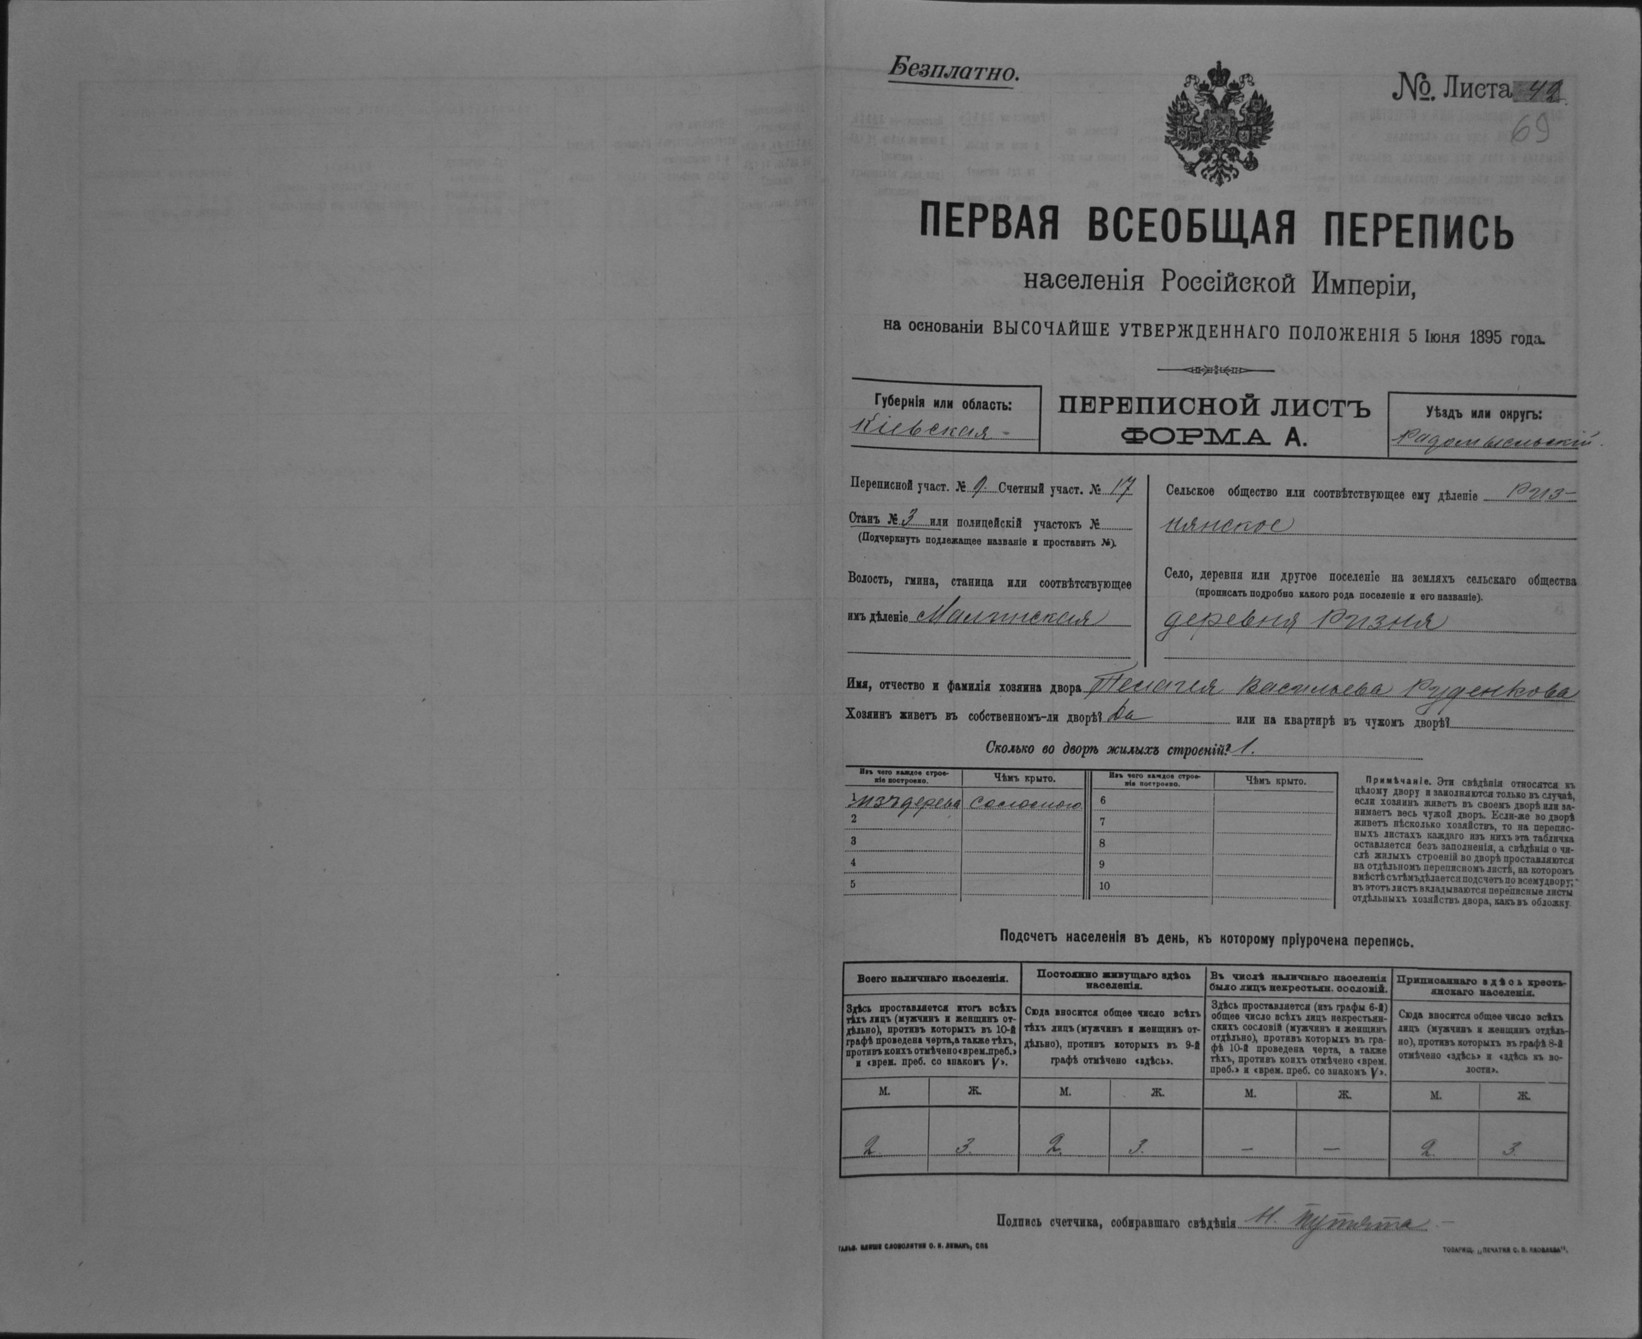 Безплатно.
№ Листа 42
69
ПЕРВАЯ ВСЕОБЩАЯ ПЕРЕПИСЬ
населенія Россійской Имперіи,
на основаніи ВЫСОЧАЙШЕ УТВЕРЖДЕННАГО ПОЛОЖЕНІЯ 5 Іюня 1895 года.
Губернія или область:
Кіевская
ПЕРЕПИСНОЙ ЛИСТЪ
ФОРМА А.
Уѣздъ или округъ:
Радомысльскій
Переписной участ. № 9 Счетный участ. № 17
Станъ № 3 или полицейскій участокъ №
(Подчеркнуть подлежащее названіе и проставить №).
Волость, гмина, станица или соотвѣтствующее
имъ дѣленіе Малинская
Сельское общество или соотвѣтствующее ему дѣленіе Риз-
нянское
Село, деревня или другое поселеніе на земляхъ сельскаго общества
(прописать подробно какого рода поселеніе и его названіе).
деревня Ризня
Имя, отчество и фамилія хозяина двора Пелагея Васильева Руденкова
Хозяинъ живетъ въ собственномъ-ли дворѣ? Да или на квартирѣ въ чужомъ дворѣ?
Сколько во дворѣ жилыхъ строеній? 1.
Изъ чего каждое строе-
ніе построено.
Чѣмъ крыто.
Изъ чего каждое строе-
ніе построено.
Чѣмъ крыто.
1 изъ дерева соломою
2
3
4
5
6
7
8
9
10
Примѣчаніе. Эти свѣдѣнія относятся къ
цѣлому двору и заполняются только въ случаѣ,
если хозяинъ живетъ въ своемъ дворѣ или за-
нимаетъ весь чужой дворъ. Если-же во дворѣ
живетъ нѣсколько хозяйствъ, то на перепис-
ныхъ листахъ каждаго изъ нихъ эта табличка
оставляется безъ заполненія, а свѣдѣнія о чи-
слѣ жилыхъ строеній во дворѣ проставляются
на отдѣльномъ переписномъ листѣ, на которомъ
вмѣстѣ съ тѣмъ дѣлается подсчетъ по всему двору;
въ этотъ листъ вкладываются переписные листы
отдѣльныхъ хозяйствъ двора, какъ въ обложку.
Подсчетъ населенія въ день, къ которому пріурочена перепись.
Всего наличнаго населенія.
Здѣсь проставляется итогъ всѣхъ
тѣхъ лицъ (мужчинъ и женщинъ от-
дѣльно), противъ которыхъ въ 10-й
графѣ проведена черта, а также тѣхъ,
противъ коихъ отмѣчено «врем. преб.»
и «врем. преб. со знакомъ V».
Постоянно живущаго здѣсь
населенія.
Сюда вносится общее число всѣхъ
тѣхъ лицъ (мужчинъ и женщинъ от-
дѣльно), противъ которыхъ въ 9-й
графѣ отмѣчено «здѣсь».
Въ числѣ наличнаго населенія
было лицъ некрестьян. сословій.
Здѣсь проставляется (изъ графы 6-й)
общее число всѣхъ лицъ некрестьян-
скихъ сословій (мужчинъ и женщинъ
отдѣльно), противъ которыхъ въ гра-
фѣ 10-й проведена черта, а также
тѣхъ, противъ коихъ отмѣчено «врем.
преб.» и «врем. преб. со знакомъ V».
Приписаннаго здѣсь кресть-
янскаго населенія.
Сюда вносится общее число всѣхъ
лицъ (мужчинъ и женщинъ отдѣль-
но), противъ которыхъ въ графѣ 8-й
отмѣчено «здѣсь» и «здѣсь въ во-
лости».
М. Ж. М. Ж. М. Ж. М. Ж.
2 3 2 3 — — 2 3
Подпись счетчика, собиравшаго свѣдѣнія Н. Путята
ГАЛЬВ. КЛИШЕ СЛОВОЛИТНИ О. И. ЛЕМАНЪ, СПБ
ТОВАРИЩ. „ПЕЧАТНЯ С. П. ЯКОВЛЕВА".